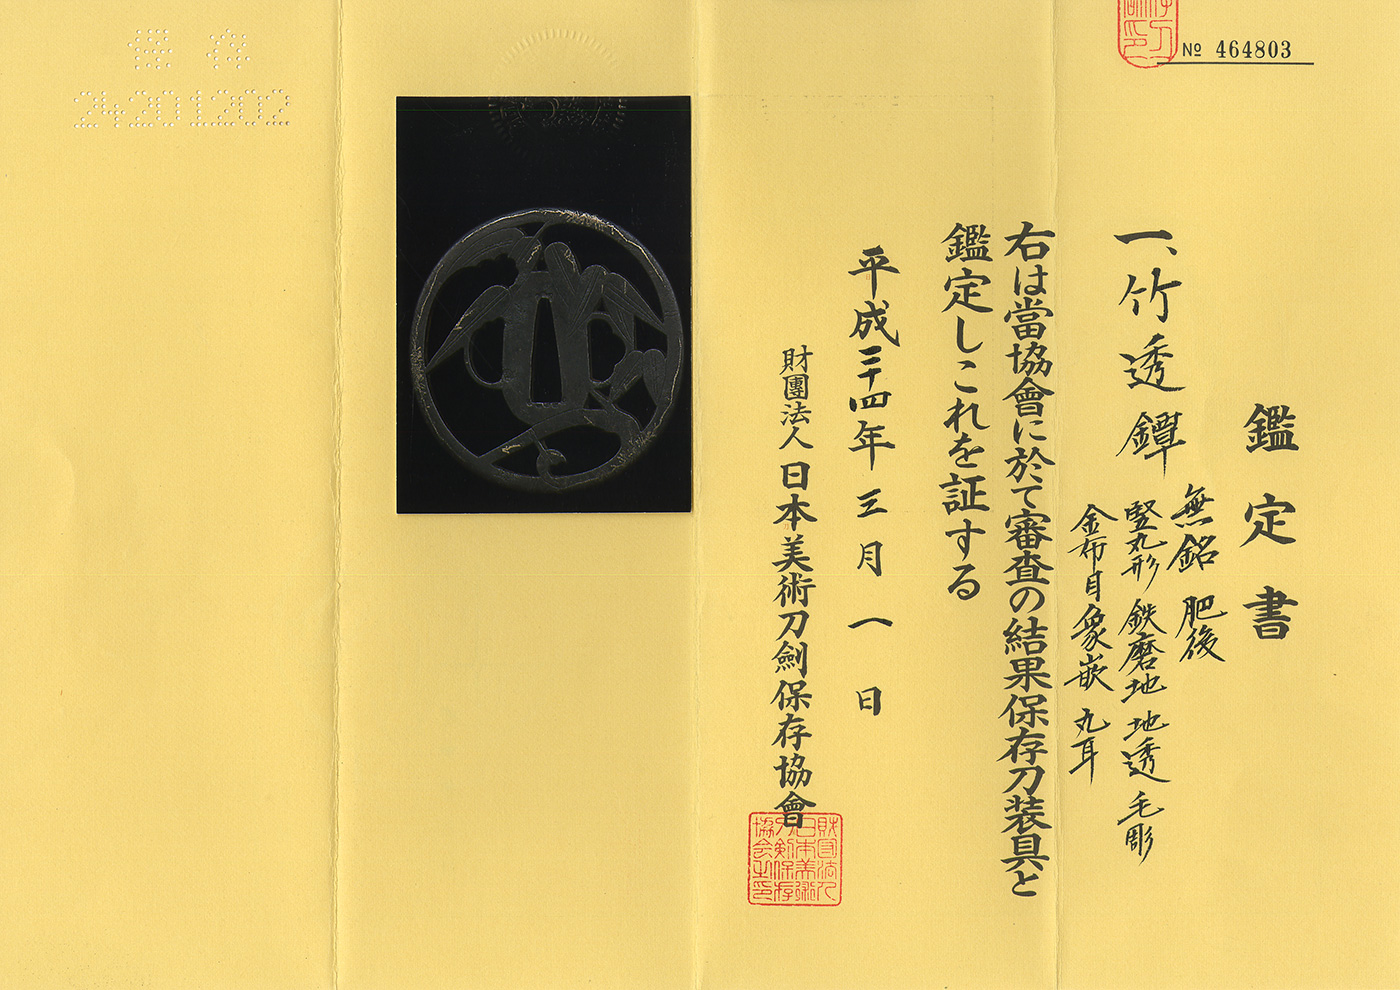 № 464803
鑑定書
一、竹透鐔
無銘 肥後
竪丸形 鉄磨地 地透 毛彫
金布目象嵌 丸耳
右は當協會に於て審査の結果保存刀装具と
鑑定しこれを証する
平成二十四年三月一日
財團法人 日本美術刀劍保存協會
財団法人
日本美術
刀剣保存
協会之印
保存
24201202